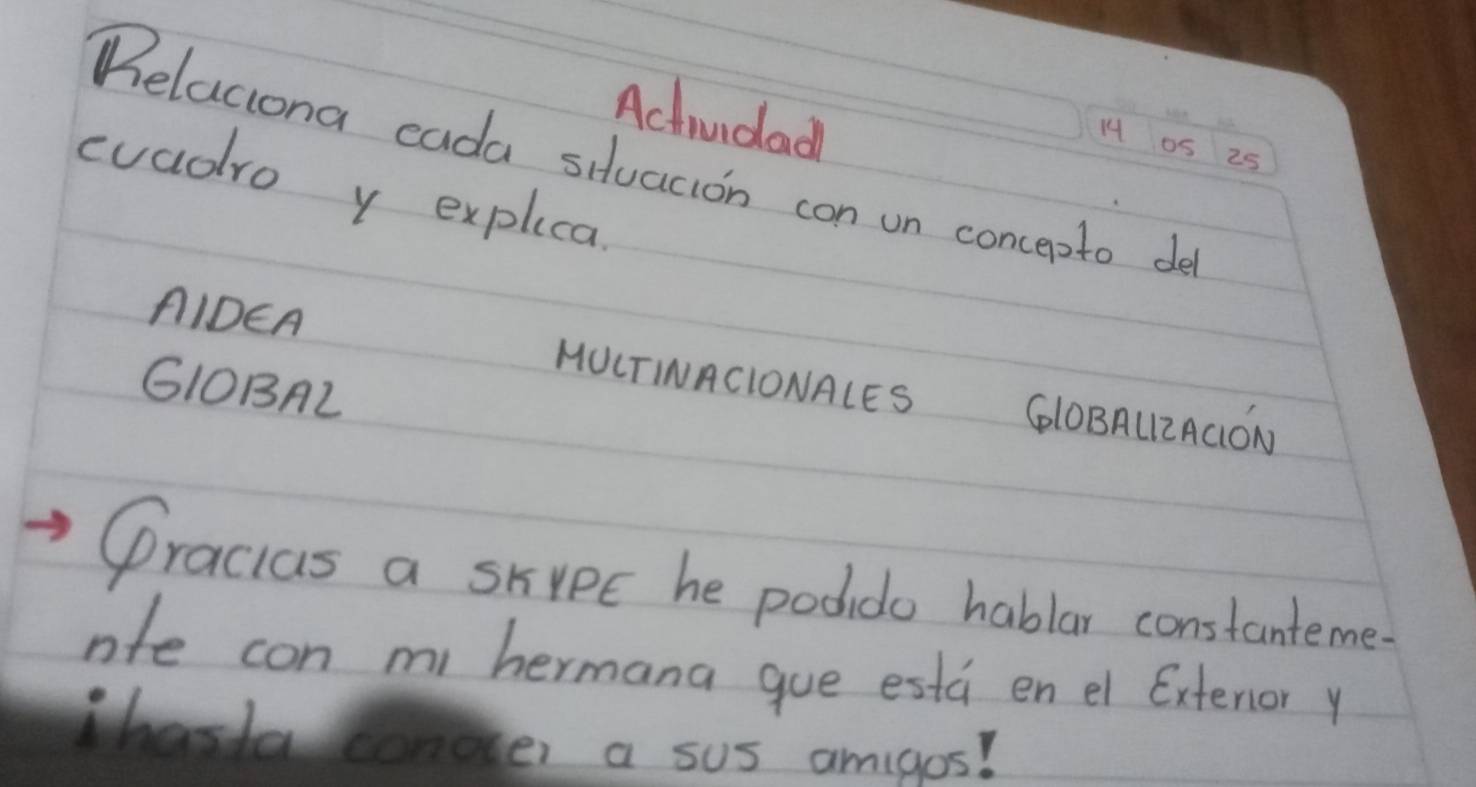 Actividad
14 05 25
Relaciona cada situación con un concepto del
cuadro y explica.
AIDEA
GIOBAL
MULTINACIONALES
GLOBALIZACIÓN
→ Gracias a SKYPE he podido hablar constanteme-
nte con mi hermana que está en el Exterior y
¡hasta conocer a sus amigos!